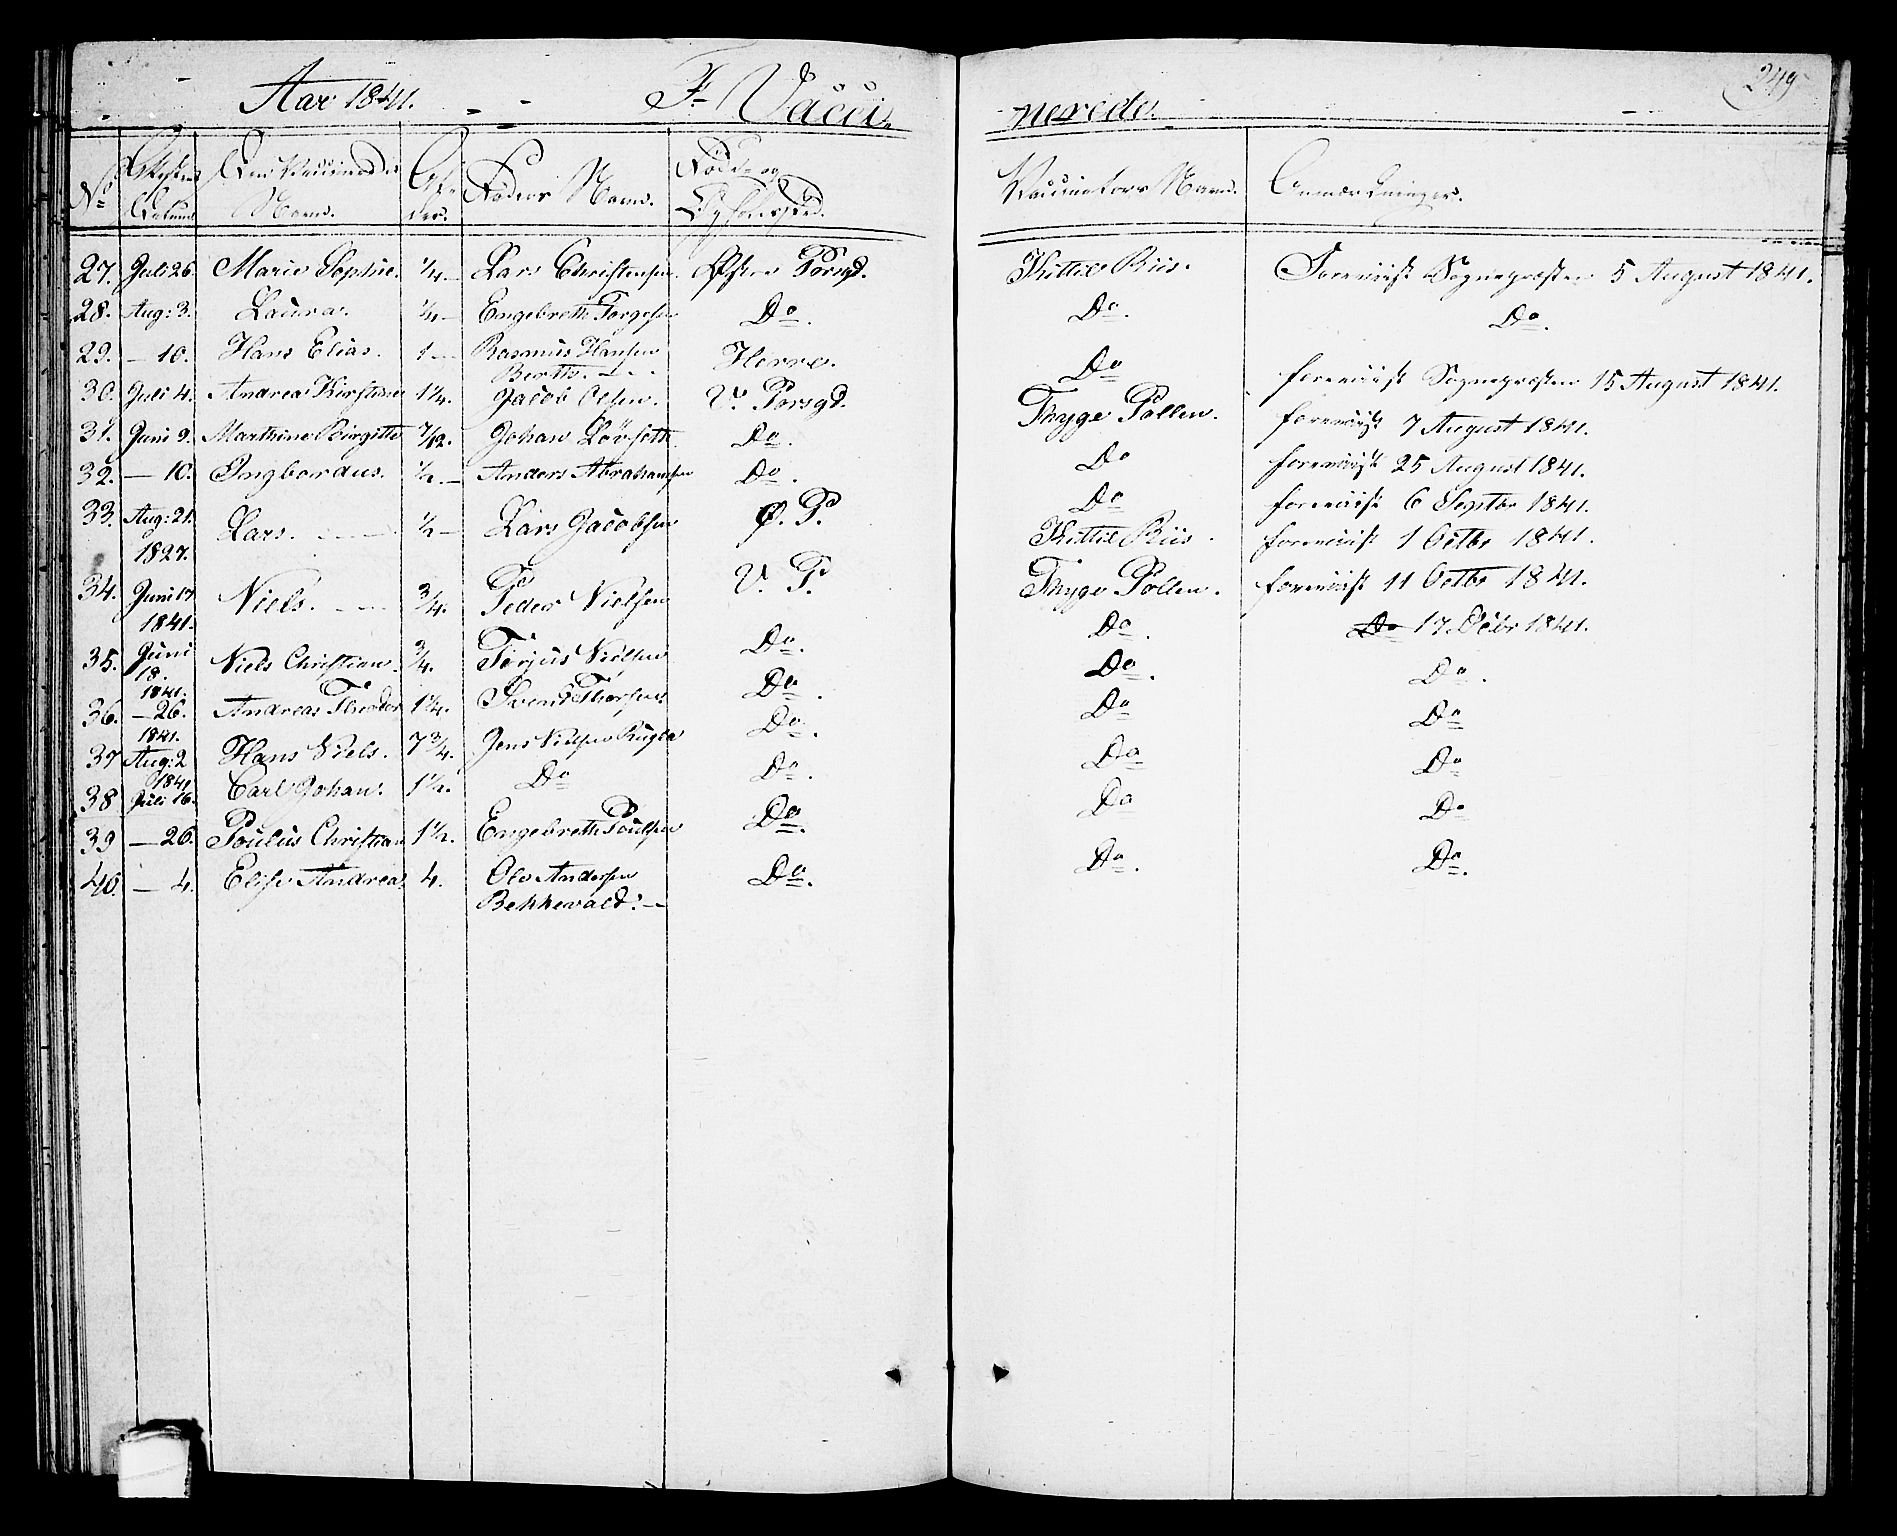 249
Aar 1841. F. Vacci-
nerede.
No Attestens Datum Den Vaccineredes Navn. Alder. Faders Navn. Føde- og Opholdssted. Vaccinators Navn. Anmærkninger.
27. Juli 26. Marie Sophie. 1/4 Lars Christensen Østre Porsgd. Kittil Riis. Foreviist Sognepræsten 5 August 1841.
28. Aug: 3. Laura. 1/4 Engebreth Torgesen Do. Do. Do.
29. — 10. Hans Elias. 1 Rasmus Hansen Herre. Do foreviist Sognepræsten 15 August 1841.
Berth.
30. Juli 4. Andrea Kirstine 1 1/4. Jacob Olsen. V. Porsgd. Thyge Pollen. foreviist 7 August 1841.
31. Juni 9. Marthine Birgitte 7/12. Johan Lövseth Do. Do foreviist 25 August 1841.
32. — 10. Ingbordus. 1/2 Anders Abrahamsen Do. Do foreviist 6 Septbr 1841.
33. Aug: 21. 1827. Lars. 1/2 Lars Jacobsen Ø. P. Kittil Riis. foreviist 1 Octbr 1841.
34. Juni 17 1841. Niels. 3/4. Peder Nielsen V. P. Thyge Pollen. foreviist 11 Octbr 1841.
35. Juni 18. 1841. Niels Christian. 3/4. Torjus Nielsen Do. Do. Do 17. Octbr 1841.
36. — 26. 1841. Andreas Theodor 1 1/4. Svend Thorsen. Do. Do. Do.
37 Aug: 2 1841 Hans Niels. 7 3/4. Jens Nielsen Rugla Do. Do Do
38 Juli 16. Carl Johan. 1 1/2. Do Do. Do Do
39 — 26. Poulus Christian 1 1/2. Engebreth Poulsen Do. Do Do
40. — 4. Elise Andrea 4. Ole Andersen Do. Do. Do.
Bekkevald.